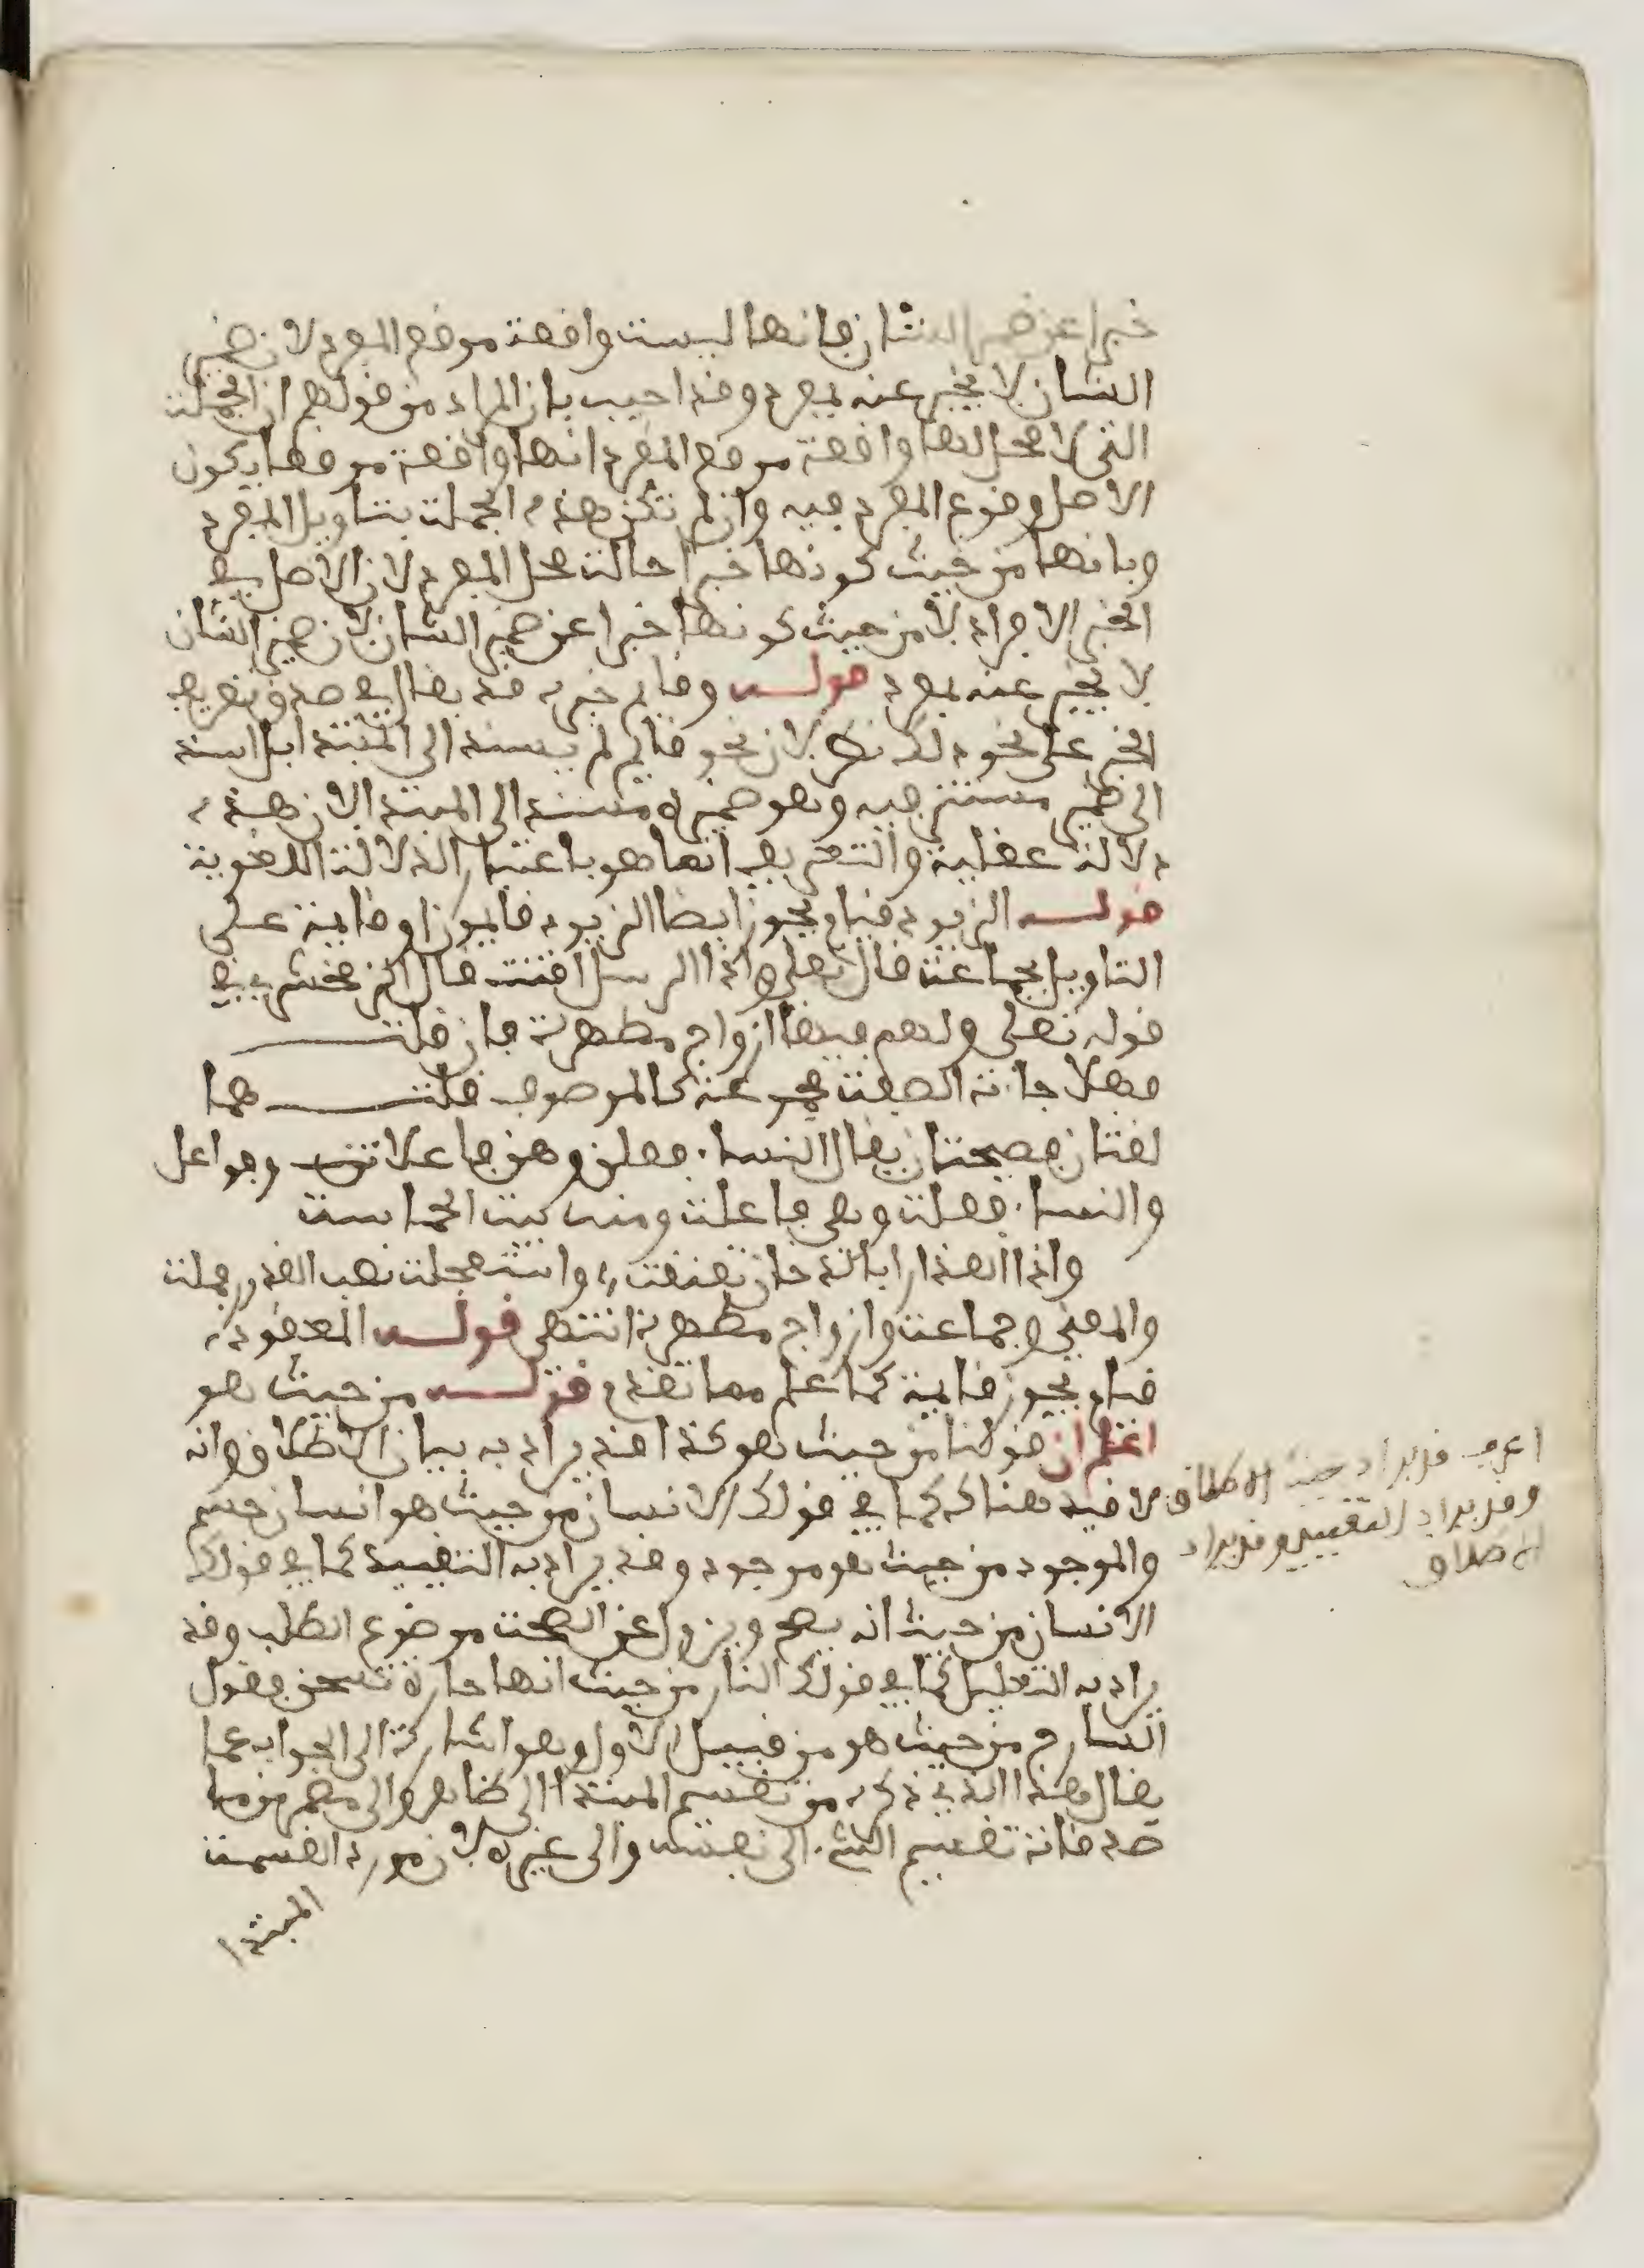 خبرا عن ضمير الشان فانها ليست واقعة موقع المفرد لان ضمير
الشان لا يخبر عنه بمفرد وقد اجيب بان المراد من قولهم ان الجملة
التي لا محل لها واقعة موقع المفرد انها واقعة موقعا يكون
الاصل وقوع المفرد فيه وان لم تكن هذه الجملة بتاويل المفرد
وبانها من حيث كونها خبرا حالت محل المفرد لان الاصل في
الخبر الافراد لا من حيث كونها خبرا عن ضمير الشان لان ضمير الشان
لا يخبر عنه بمفرد قوله وقايم خبره قد يقال في صدق تعريف
الخبر على نحو ذلك نظر لان نحو قايم لم يسند الى المبتدا بل اسند
الى ضمير مستتر فيه وهو ضميره مسند الى المبتدا لان هذه
دلالة عقلية والتعريف انما هو باعتبار الدلالة اللغوية
قوله الزيود قيام يجوز ايضا الزيود قايمون او قايمة على
التاويل بجماعة قال تعلى واذا الرسل اقتت قال الزمخشري في
قوله تعلى ولهم فيها ازواج مطهرة فان قلت
فهلا جاءت الصفة مجموعة كالموصوف قلت هما
لغتان فصيحتان يقال النساء فعلن وهن فاعلات وفواعل
والنساء فعلت وهي فاعلة ومنه بيت الحماسة
واذا العذارا بالدخان تقنعت، واستعجلت نصب القدور فملت
والمعنى وجماعة ازواج مطهرة انتهى قوله المعقودة
قيام يجوز قايمة كما علم مما تقدم قوله من حيث هو
اعلم ان قولنا من حيث هو كذا قد يراد به بيان الاطلاق وانه
لا قيد هناك كما في قولك الانسان من حيث هو انسان جسم
والموجود من حيث هو موجود وقد يراد به التقييد كما في قولك
الانسان من حيث انه يصح ويزول عن الصحة موضوع الطب وقد
يراد به التعليل كما في قولك النار من حيث انها حارة تسخن فقول
الشارح من حيث هو من قبيل الاول وهو اشارة الى الجواب عما
يقال هذا الذي ذكره من تقسيم المبتدا الى ظاهر والى مضمر من ما
صدقاته تقسيم الشيء الى نفسه والى غيره لان مورد القسمة
المبتدا
اعرف قد يراد حيث الاطلاق
وقد يراد التقييد وقد يراد
الاطلاق